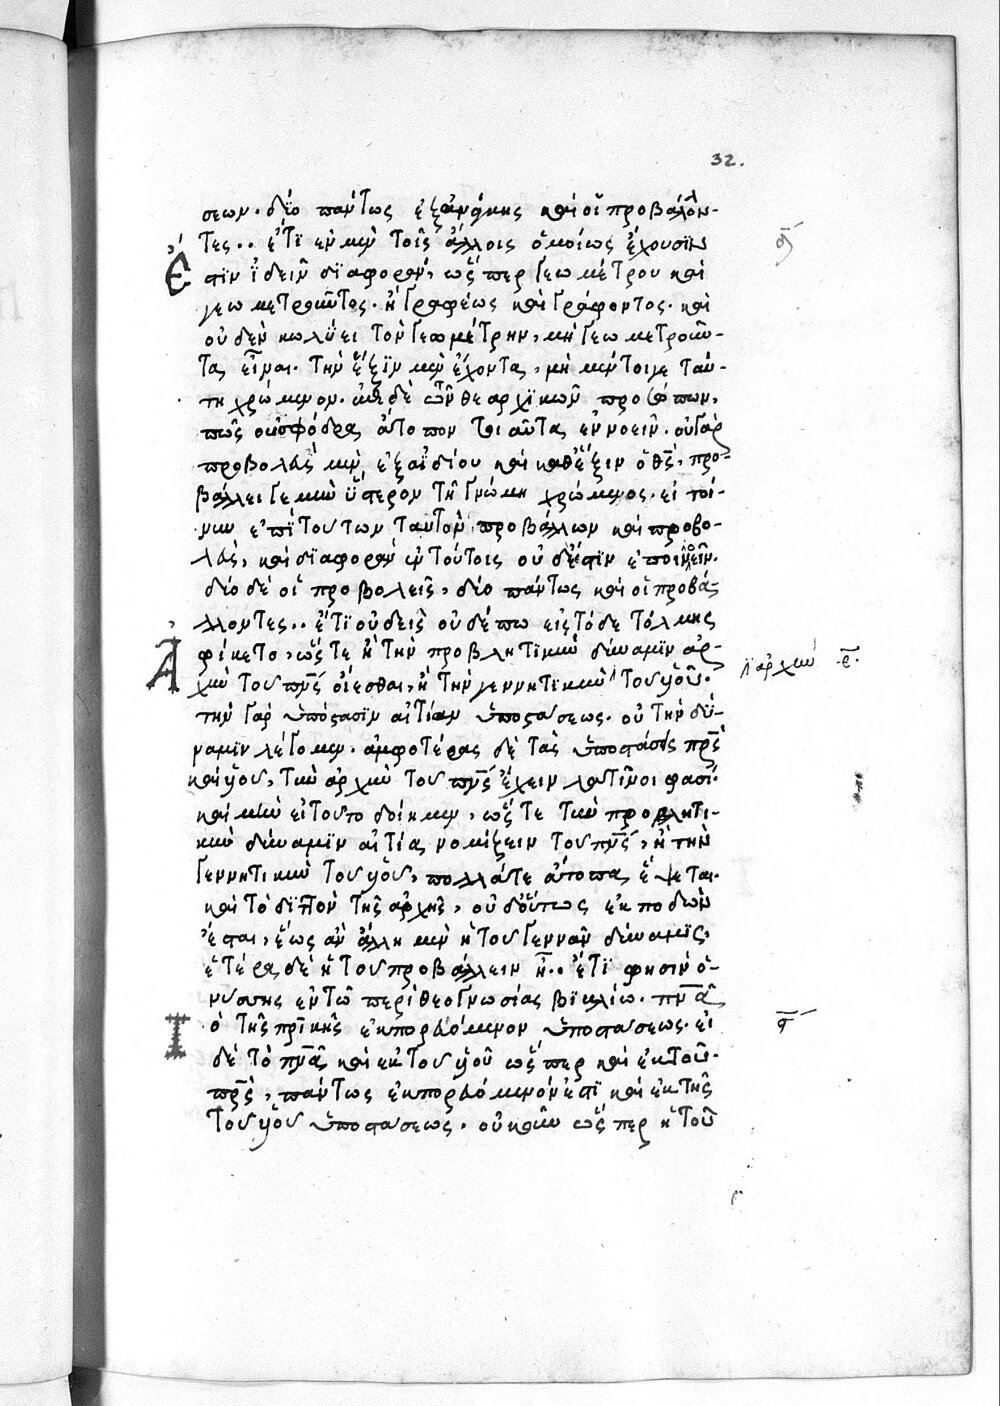 32.
σεων. δύο πάντως ἐξανάγκης καὶ οἱ προβάλλον-
τες.. ἔτι ἐν μὲν τοῖς ἄλλοις ὁμοίως ἔχουσιν
ἐστὶν ἰδεῖν διαφοράν, ὥσπερ γεωμέτρου καὶ
γεωμετροῦντος. ἢ γραφέως καὶ γράφοντος. καὶ
οὐδὲν κωλύει τὸν γεωμέτρην, μὴ γεωμετροῦν-
τας εἶναι. τὴν ἕξιν μὲν ἔχοντα, μὴ μέντοιγε ταύ-
τη χρώμενον. ἐπὶ δὲ τῶν θεαρχικῶν προσώπων,
πῶς οὐ σφόδρα ἄτοπον τοιαῦτα ἐννοεῖν. οὐ γὰρ
προβολεὺς μὲν ἐξ ἀϊδίου καὶ καθ' ἕξιν ὁ θς, προ-
βάλλει γε μὴν ὕστερον τῇ γνώμῃ χρώμενος. εἰ τοί-
νυν ἐπὶ τούτων ταυτὸν προβάλλων καὶ προβο-
λεὺς, καὶ διαφορὰν ἐν τούτοις οὐδέ ἐστιν ἐπινοεῖν.
δύο δὲ οἱ προβολεῖς, δύο πάντως καὶ οἱ προβά-
λλοντες.. ἔτι οὐδεὶς οὐδέπω εἰς τόδε τόλμης
ἀφίκετο, ὥστε ἢ τὴν προβλητικὴν δύναμιν ἀρ-
χὴν τοῦ πνς οἴεσθαι, ἢ τὴν γεννητικὴν τοῦ υἱοῦ.
ἀρχὴν ε.
τὴν γὰρ ὑπόστασιν αἰτίαν ὑποστάσεως. οὐ τὴν δύ-
ναμιν λέγομεν. ἀμφοτέρας δὲ τὰς ὑποστάσεις πρς
καὶ υἱοῦ, τὴν ἀρχὴν τοῦ πνς ἔχειν λατῖνοι φασί.
καὶ μὴν εἰ τοῦτο δοίημεν, ὥστε τὴν προβλητι-
κὴν δύναμιν αἰτίας νομίζειν τοῦ πνς, ἢ τὴν
γεννητικὴν τοῦ υἱοῦ, πολλά τε ἄτοπα ἕψεται.
καὶ τὸ διττὸν τῆς ἀρχῆς, οὐδ' οὕτως ἐκποδὼν
ἔσται, ἕως ἂν ἄλλη μὲν ἡ τοῦ γεννᾶν δύναμις.
ἑτέρα δὲ ἡ τοῦ προβάλλειν ᾖ.. ἔτι φησὶν ὁ διο-
νύσιος ἐν τῷ περὶ θεογνωσίας βιβλίῳ. πνα
τὸ τῆς πρικῆς ἐκπορευόμενον ὑποστάσεως. εἰ
δὲ τὸ πνα καὶ ἐκ τοῦ υἱοῦ ὥσπερ καὶ ἐκ τοῦ
πρς, πάντως ἐκπορευόμενόν ἐστι καὶ ἐκ τῆς
τοῦ υἱοῦ ὑποστάσεως. οὐκοῦν ὥσπερ ἡ τοῦ